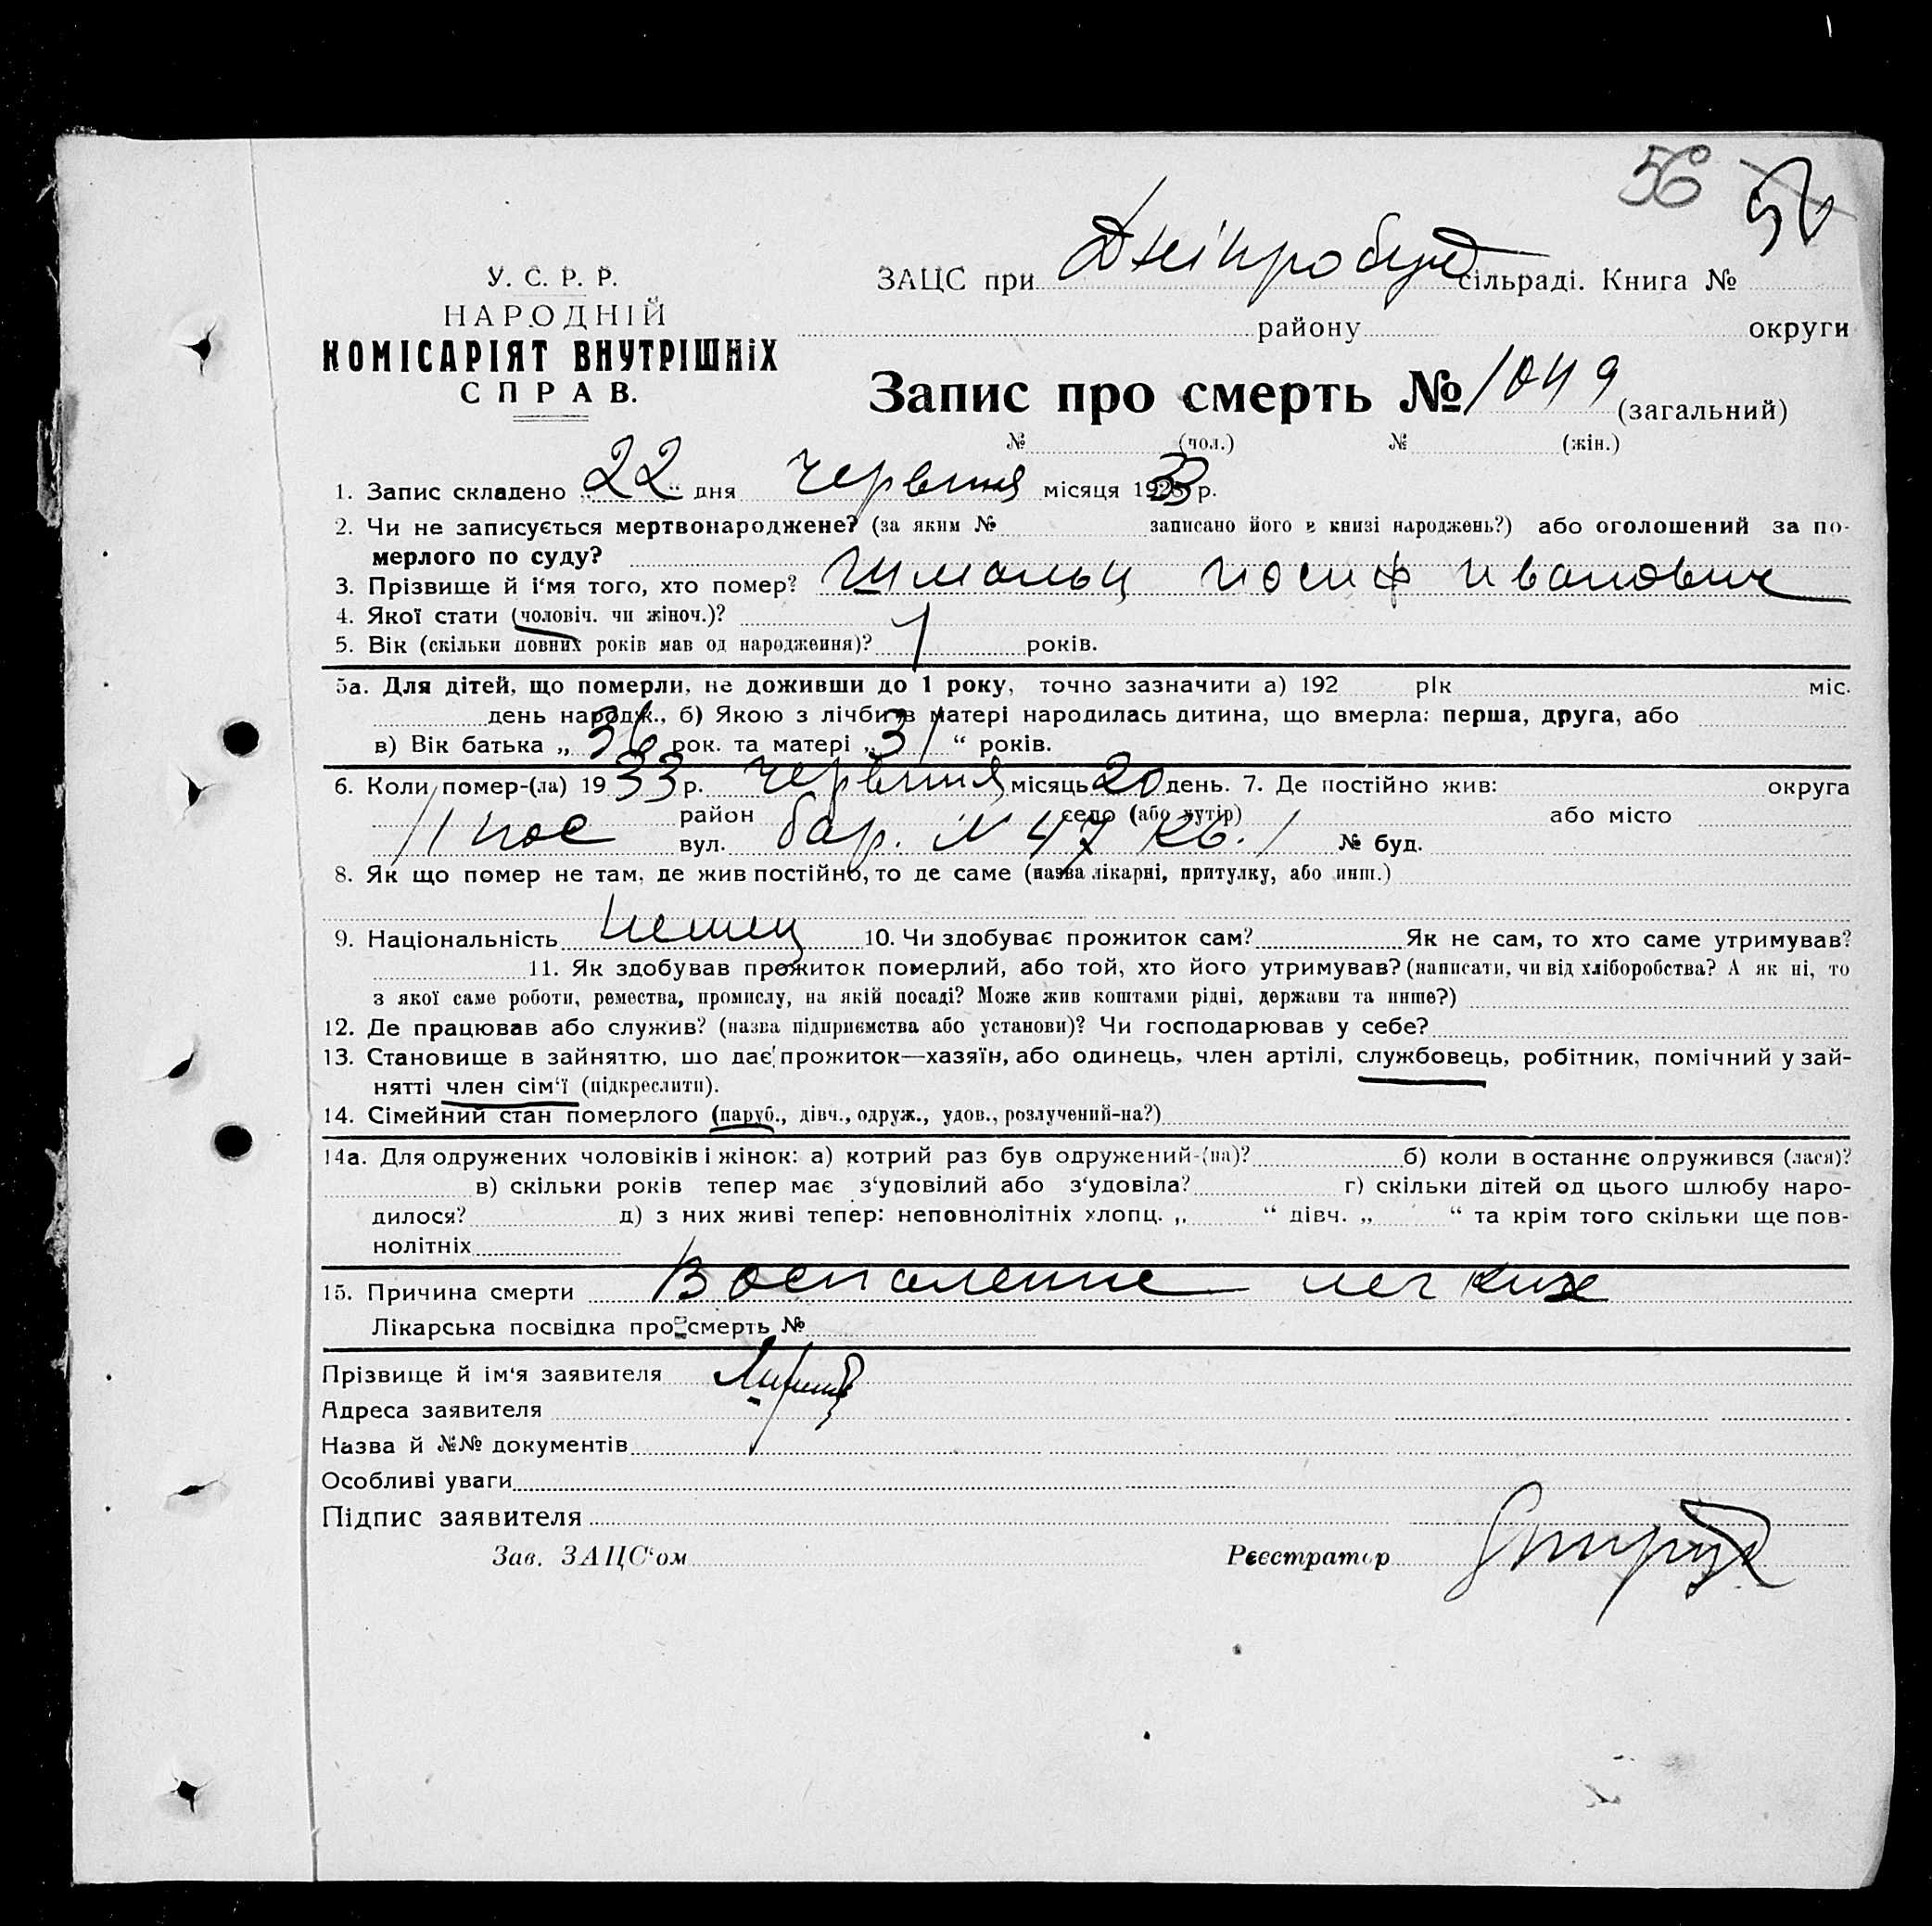 56 56
У. С. Р. Р.
НАРОДНІЙ
КОМІСАРІЯТ ВНУТРІШНІХ
СПРАВ.
ЗАЦС при Дніпробуд сільраді. Книга №
району округи
Запис про смерть № 1049 (загальний)
№ (чол.) № (жін.)
1. Запис складено „22“ дня червня місяця 1933 р.
2. Чи не записується мертвонароджене? (за яким № записано його в книзі народжень?) або оголошений за по-
мерлого по суду?
3. Прізвище й і‘мя того, хто помер? Шмальц Иосиф Иванович
4. Якої стати (чоловіч. чи жіноч.)?
5. Вік (скільки повних років мав од народження)? 1 років.
5а. Для дітей, що померли, не доживши до 1 року, точно зазначити а) 192 рік міс.
день народж., б) Якою з лічби в матері народилась дитина, що вмерла: перша, друга, або
в) Вік батька „36 рок. та матері „31“ років.
6. Коли помер-(ла) 1933 р. червня місяць 20 день. 7. Де постійно жив: округа
район село (або хутір) або місто
11 пос вул. бар. N 47 кв. 1 № буд.
8. Як що помер не там, де жив постійно, то де саме (назва лікарні, притулку, або инш.)
9. Національність немец 10. Чи здобуває прожиток сам? Як не сам, то хто саме утримував?
11. Як здобував прожиток померлий, або той, хто його утримував? (написати, чи від хліборобства? А як ні, то
з якої саме роботи, ремества, промислу, на якій посаді? Може жив коштами рідні, держави та инше?)
12. Де працював або служив? (назва підприємства або установи)? Чи господарював у себе?
13. Становище в зайняттю, що дає прожиток—хазяїн, або одинець, член артілі, службовець, робітник, помічний у зай-
нятті член сім‘ї (підкреслити).
14. Сімейний стан померлого (паруб., дівч., одруж., удов., розлучений-на?)
14а. Для одружених чоловіків і жінок: а) котрий раз був одружений-(на)? б) коли в останнє одружився (лася)?
в) скільки років тепер має з‘удовілий або з‘удовіла? г) скільки дітей од цього шлюбу наро-
дилося? д) з них живі тепер: неповнолітніх хлопц. „ “ дівч. „ “ та крім того скільки ще пов-
нолітніх
15. Причина смерти Воспаление легких
Лікарська посвідка про смерть №
Прізвище й ім‘я заявителя
Адреса заявителя
Назва й №№ документів
Особливі уваги
Підпис заявителя
Зав. ЗАЦС‘ом Реєстратор